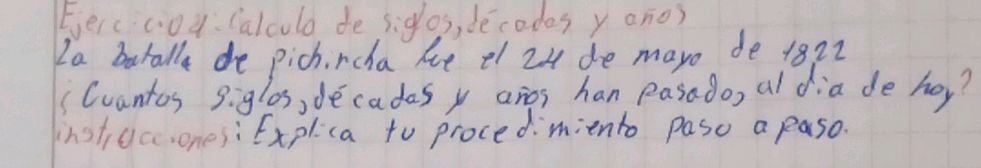 Ejercicio 4: Calculo de siglos, décadas y años
La batalla de pichincha fue el 24 de mayo de 1822
¿Cuantos siglos, décadas y años han pasado, al día de hoy?
instrucciones: Explica tu procedimiento paso a paso.